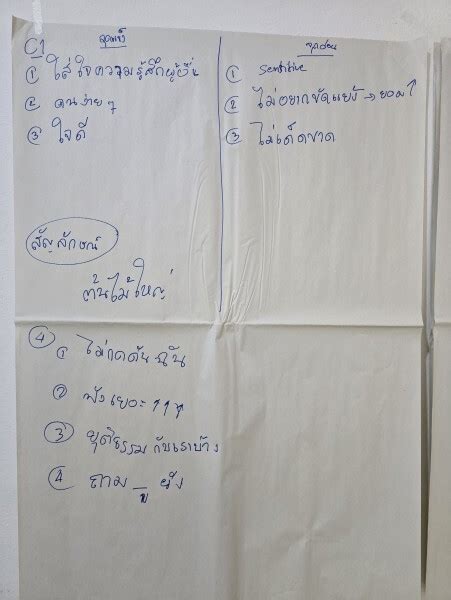 C1
จุดแข็ง
① ใส่ใจความรู้สึกผู้อื่น
② คนง่าย ๆ
③ ใจดี
จุดอ่อน
① sensitive
② ไม่อยากขัดแย้ง → ยอม ↑
③ ไม่เด็ดขาด
สัญลักษณ์
ต้นไม้ใหญ่
④
① ไม่กดดันฉัน
② ฟังเยอะ ↑↑
③ ยุติธรรมกับเราบ้าง
④ ถาม _ ฟัง